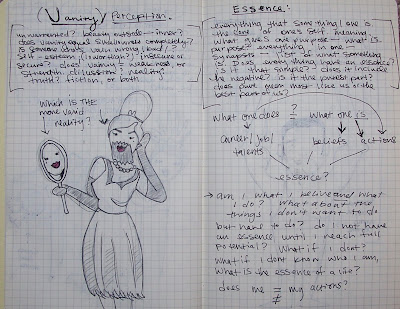 Vanity/Perception.
unwarranted? beauty outside → inner?
does vanity equal shallowness completely?
is someone who's vain wrong/bad?
self-esteem (low or high)? insecure or
secure? does vanity = weakness, or
strength. discussion? reality?
truth? fiction, or both
which is THE
more vain?
reality?
Essence:
everything that something/one is
the core of one's self. meaning
what one's one purpose - what is
purpose? everything in one -
synopsis / list of what something
is. Does every thing have an essence?
Is it that simple? does it include
the negative? Or it the purest part?
does our mean most like us or the
best part of us?
what one does ? what one is
=
career/job/
talents
beliefs actions
essence?
→ am I what I believe and what
I do? What about the
things I don't want to do
but have to do? do I not have
an essence until I reach full
potential? What if I don't?
what if I don't know who I am,
what is the essence of a life?
does me = my actions?
≠